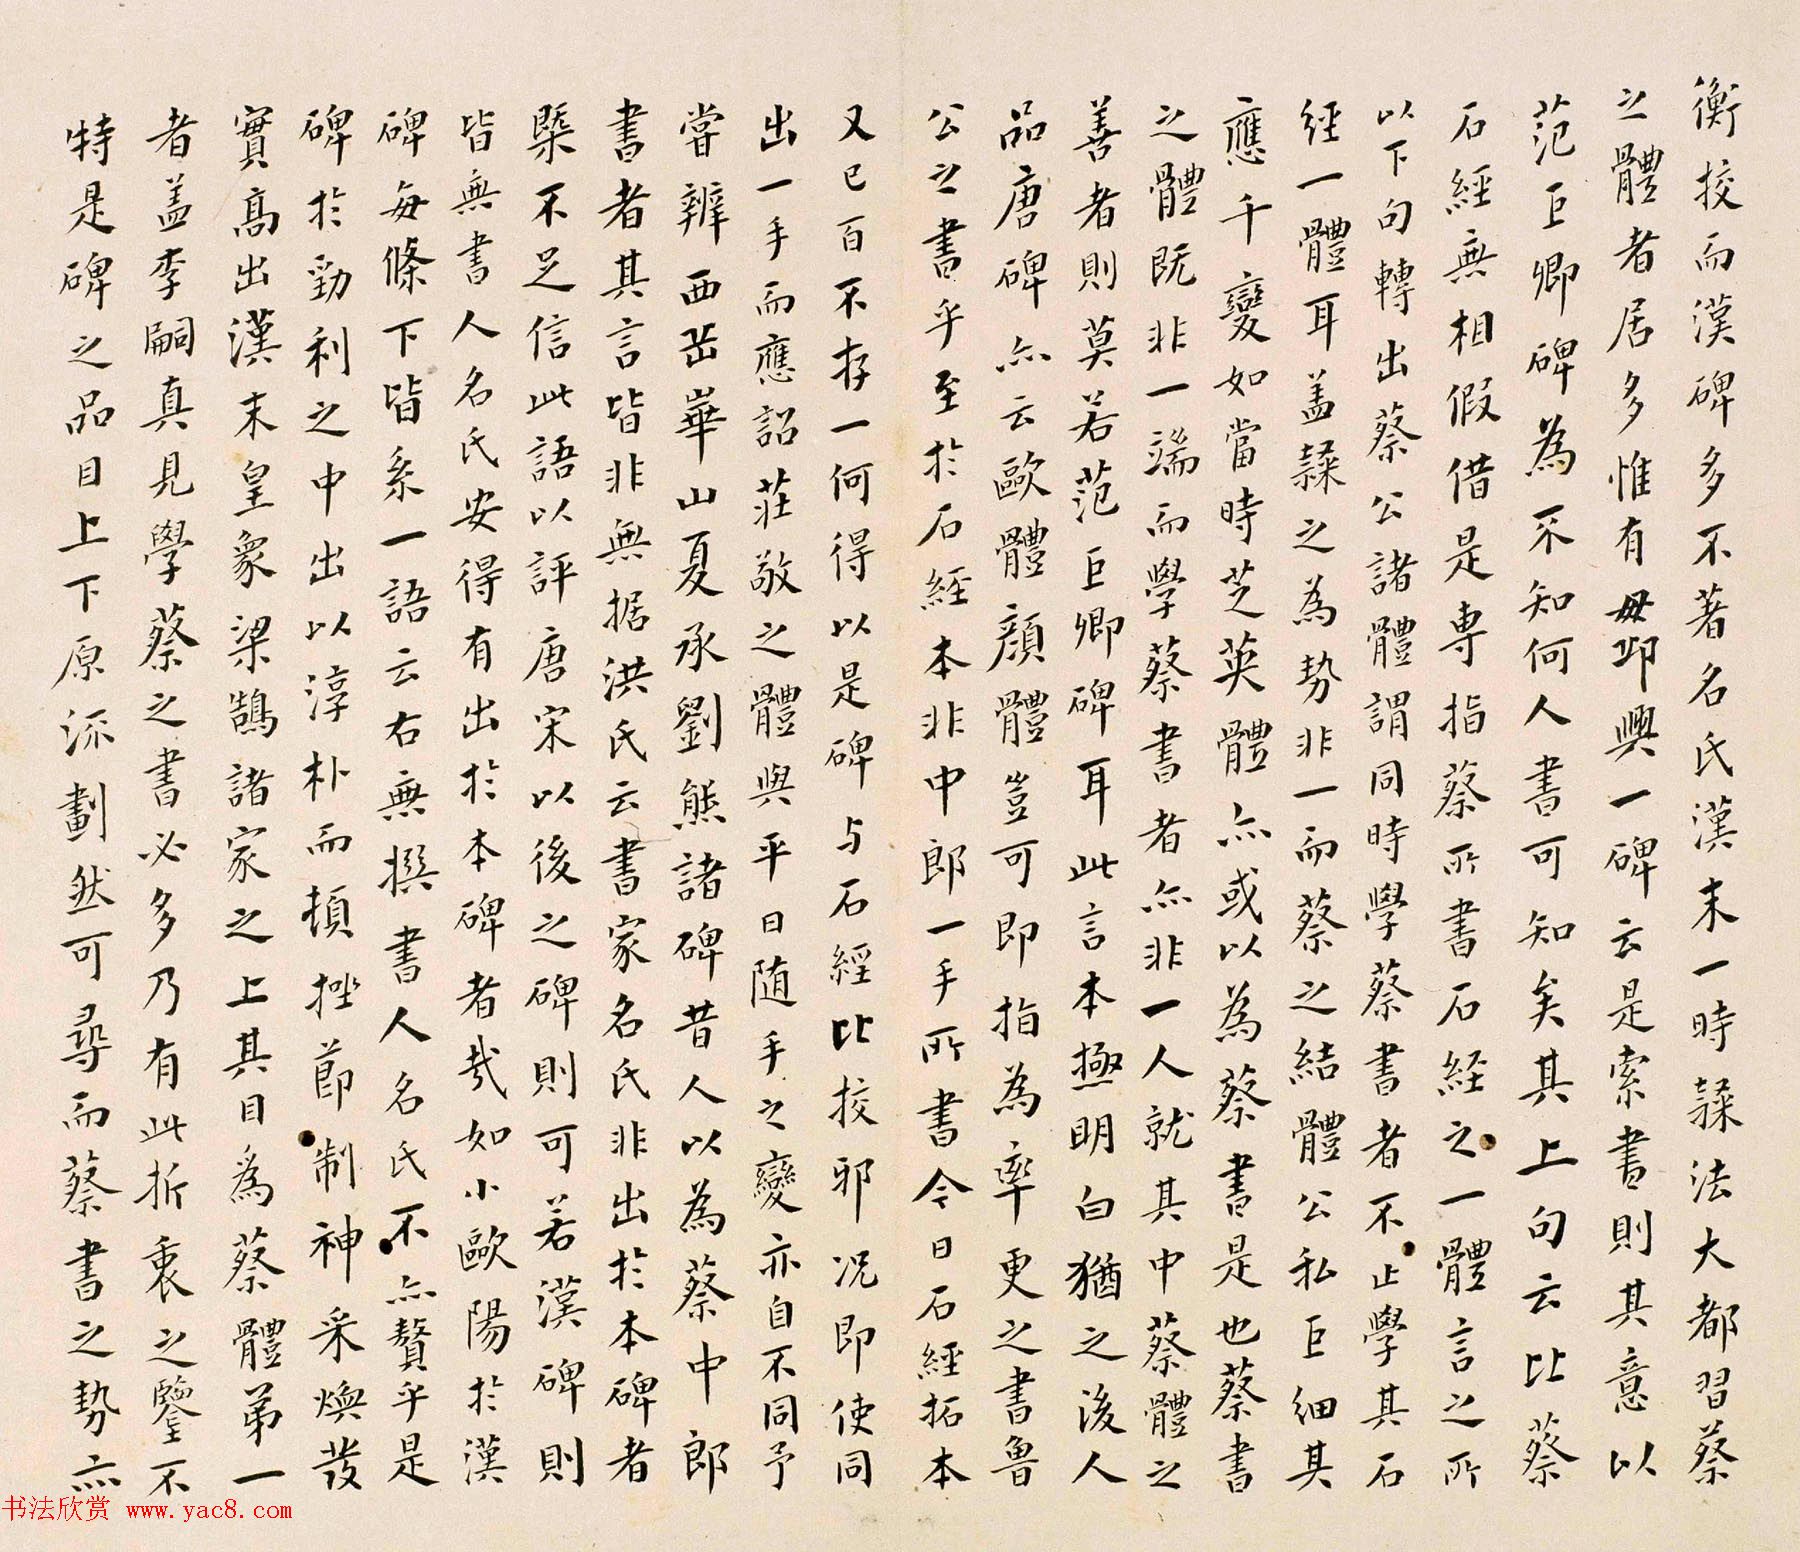 衡挍而漢碑多不著名氏漢末一時隸法大都習蔡
之體者居多惟有毋丘興一碑云是索書則其意以
范巨卿碑為不知何人書可知矣其上句云比蔡
石經無相假借是専指蔡所書石経之一體言之所
以下句轉出蔡公諸體謂同時學蔡書者不止學其石
経一體耳盖隸之為勢非一而蔡之結體公私巨細其
應千變如當時芝英體亦或以為蔡書是也蔡書
之體既非一端而學蔡書者亦非一人就其中蔡體之
善者則莫若范巨卿碑耳此言本極明白猶之後人
品唐碑亦云歐體顔體豈可即指為率更之書魯
公之書乎至於石經本非中郎一手所書今日石經拓本
又已百不存一何得以是碑与石經比挍邪况即使同
出一手而應詔莊敬之體與平日随手之變亦自不同予
嘗辨西嶽崋山夏承劉熊諸碑昔人以為蔡中郎
書者其言皆非無据洪氏云書家名氏非出於本碑者
槩不足信此語以評唐宋以後之碑則可若漢碑則
皆無書人名氏安得有出於本碑者哉如小歐陽於漢
碑每條下皆系一語云右無撰書人名氏不亦贅乎是
碑於勁利之中出以淳朴而頓挫莭制神采煥發
實髙出漢末皇象梁鵠諸家之上其目為蔡體苐一
者盖李嗣真見學蔡之書必多乃有此折衷之鑒不
特是碑之品目上下原流劃然可尋而蔡書之勢亦
书法欣赏 www.yac8.com